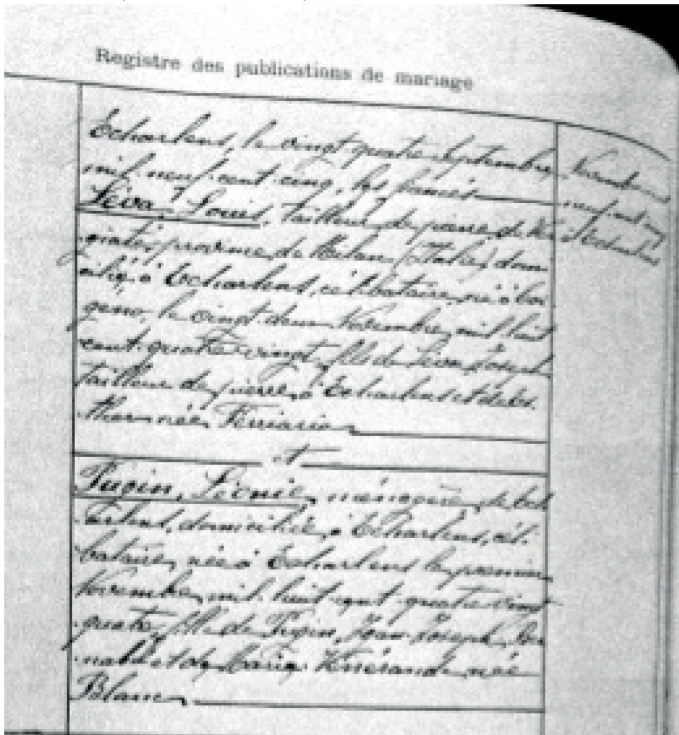 Registre des publications de mariage
Echarlens, le vingt quatre Septembre
mil neuf cent cinq, les fiancés
Léva, Louis, tailleur de pierre, de
province de Milan (Italie) dom
cilié à Echarlens, célibataire, né à
le vingt deux Novembre mil huit
cent quatre vingt, fils de Léva Joseph
tailleur de pierre, à Echarlens et de
née Ferrario
et
Pugin, Léonie, ménagère, de Ech
arlens, domiciliée à Echarlens, céli
bataire, née à Echarlens le premier
Novembre mil huit cent quatre vingt
quatre, fille de Pugin, Jean Joseph
et de Marie Vénérande née
Blanc
Novembre
neuf cent cinq
à Echarlens